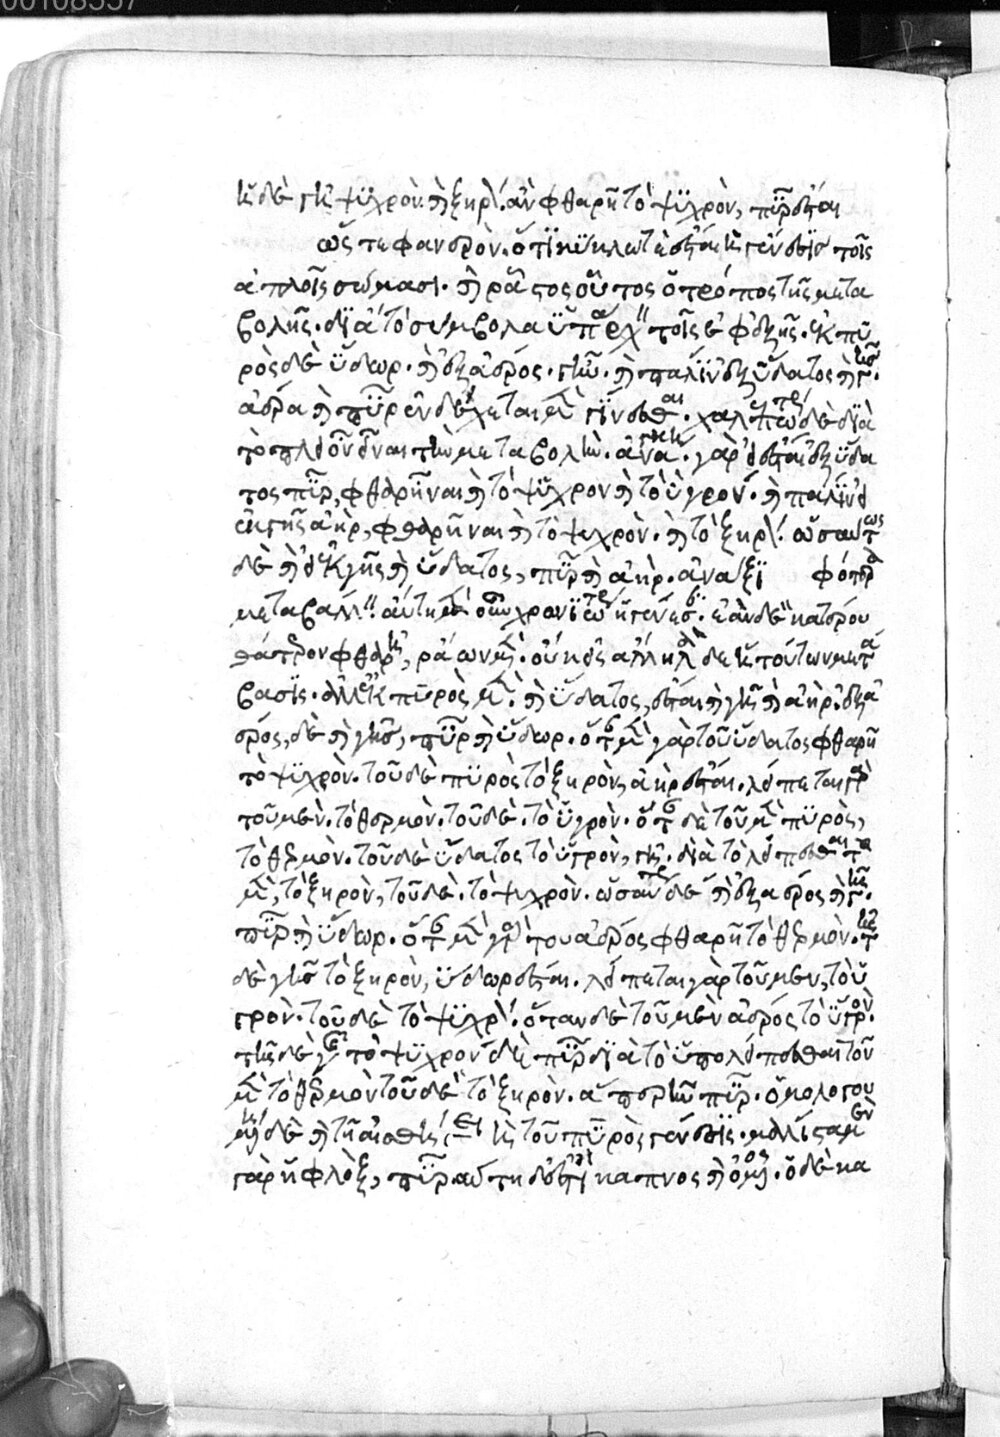 ἡ δὲ γῆ ψϋχρὸν καὶ ξηρὸν. ἀὰν φθαρῆ τὸ ψϋχρὸν, πῦρ ἔσται
ὥς τε φανερὸν. ὅτι κϋκλω τὲ ἔσται ἡ γένεσϊς τοῖς
ἁπλοῖς σώμασι. καὶ ρᾶστος οὗτος ὁ τρόπος τῆς μετα
βολῆς. δϊὰ τὸ σύμβολα ϋπάρχειν τοῖς ἐφεξῆς. ἐκ πυ
ρὸς δὲ ὕδωρ. καὶ ἐξ ἀέρος. γῆν. καὶ πάλϊν ἐξ ὕδατος καὶ γῆς.
ἀέρα καὶ πῦρ ἐνδέχεται μὲν γϊνεσθαι. χαλεπώτερον δὲ δϊὰ
τὸ πλειόνων εἶναι τὴν μεταβολὴν. ἀνάγκη γὰρ εἰ ἔσται ἐξ ὕδα
τος πῦρ, φθαρῆναι καὶ τὸ ψῦχρον καὶ τὸ ὑγρον. καὶ πάλϊν εἰ
ἐκ γῆς ἀὴρ, φθαρῆναι καὶ τὸ ψυχρὸν. καὶ τὸ ξηρὸν. ὡσαύτως
δὲ καὶ εἰ ἐκ γῆς καὶ ὕδατος, πῦρ καὶ ἀὴρ. ἀνάγκη ἀμφότερα
μεταβάλλειν. αὕτη μὲν οὖν χρονϊωτέρα ἡ γένεσις. ἐὰν δὲ ἑκατέρου
θάτερον φθαρῆ, ράων μὲν. οὐκ εἰς ἄλληλα δὲ ἡ τούτων μετά
βασϊς. ἀλλ' ἐκ πυρὸς μὲν. καὶ ὕδατος, ἔσται καὶ γῆ καὶ ἀὴρ. ἐξ ἀ
έρος, δὲ καὶ γῆς, πῦρ καὶ ὕδωρ. ὅταν μὲν γὰρ τοῦ ὕδατος φθαρῆ
τὸ ψϋχρὸν. τοῦ δὲ πϋρὸς τὸ ξηρὸν, ἀὴρ ἔσται. λείπεται γὰρ
τοῦ μὲν. τὸ θερμὸν. τοῦ δὲ. τὸ ὑγρὸν. ὅταν δὲ τοῦ μὲν πϋρὸς,
τὸ θερμὸν. τοῦ δὲ ὕδατος τὸ ὑγρὸν, γῆ. δϊὰ τὸ λείπεσθαι τοῦ
μὲν, τὸ ξηρὸν, τοῦ δὲ. τὸ ψυχρὸν. ὡσαύτως δὲ καὶ ἐξ ἀέρος καὶ γῆς.
πῦρ καὶ ὕδωρ. ὅταν μὲν γὰρ του ἀέρος φθαρῆ τὸ θερμὸν. τῆς
δὲ γῆς τὸ ξηρὸν, ὕδωρ ἔσται. λείπεται γὰρ τοῦ μεν, τὸ ὑ
γρὸν. τοῦ δὲ τὸ ψϋχρὸν. ὅταν δὲ τοῦ μὲν ἀέρος τὸ ὑγρὸν.
τῆς δὲ γῆς τὸ ψϋχρὸν, πῦρ δϊὰ τὸ ϋπολείπεσθαι τοῦ
μὲν τὸ θερμὸν τοῦ δὲ τὸ ξηρὸν. ἅπερ ἦν πῦρ. ὁμολογου
μένη δὲ καὶ τῆ αἰσθήσει ἐστὶν ἡ τοῦ πϋρὸς γένεσϊς. μάλϊστα μὲν
γὰρ ἡ φλὸξ, πῦρ. αὕτη δ' ἐστὶ καπνος καιόμενος. ὁ δὲ κα